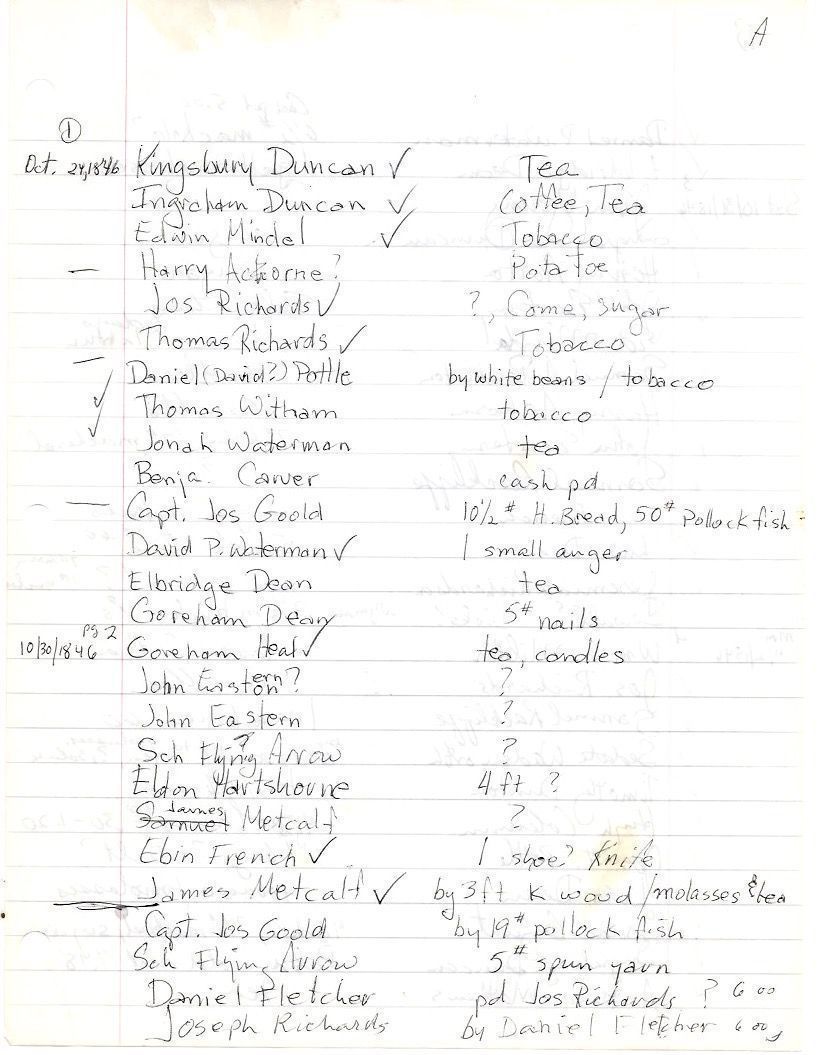 A
1
Oct. 24, 1846 Kingsbury Duncan ✓ Tea
Ingraham Duncan ✓ Coffee, Tea
Edwin Mindel ✓ Tobacco
— Harry Ackorne? PotaToe
Jos Richards ✓ ?, Come, sugar
Thomas Richards ✓ Tobacco
— Daniel (David?) Pottle by white beans / tobacco
✓ Thomas Witham tobacco
✓ Jonah Waterman tea
Benja. Carver cash pd
— Capt. Jos Goold 10½ # H. Bread, 50# Pollock fish
David P. Waterman ✓ 1 small anger
Elbridge Dean tea
Goreham Dean 5# nails
pg 2
10/30/1846 Goreham Heal ✓ tea, candles
John Eastern? ?
John Eastern ?
Sch Flying? Arrow ?
Eldon Hartshorne 4 ft ?
James Metcalf ?
Ebin French ✓ 1 shoe? Knife
James Metcalf ✓ by 3ft K wood / molasses & tea
Capt. Jos Goold by 19# pollock fish
Sch Flying Arrow 5# spun yarn
Daniel Fletcher pd Jos Richards ? 6 00
Joseph Richards by Daniel Fletcher 6 00